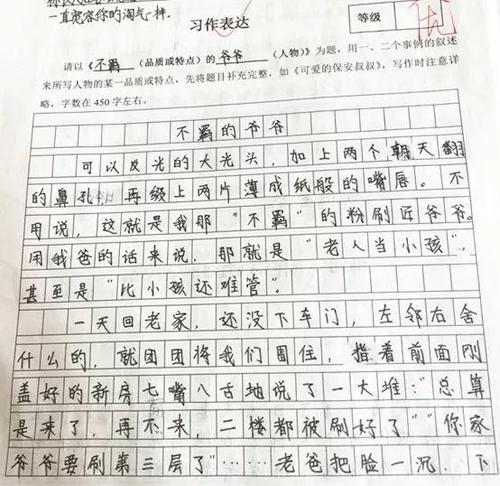 一直宽容你的淘气一样.
习作表达
等级
优
请以《 不羁 （品质或特点）的 爷爷 （人物）》为题，用一、二个事例的叙述
来所写人物的某一品质或特点，先将题目补充完整，如《可爱的保安叔叔》，写作时注意详
略，字数在 450 字左右。
不羁的爷爷
可以反光的大光头，加上两个朝天翻
的鼻孔，再缀上两片薄成纸般的嘴唇。不
用说，这就是我那“不羁”的粉刷匠爷爷。
用我爸的话来说，那就是“老人当小孩”，
甚至是“比小孩还难管”。
一天回老家，还没下车门，左邻右舍
什么的，就团团将我们围住，指着前面刚
盖好的新房七嘴八舌地说了一大堆：“总算
是来了，再不来，二楼都被刷好了”“你家
爷爷要刷第三层了”……老爸把脸一沉．下